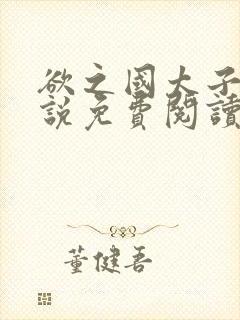 欲之國大子
說免費閱讀
董健吾